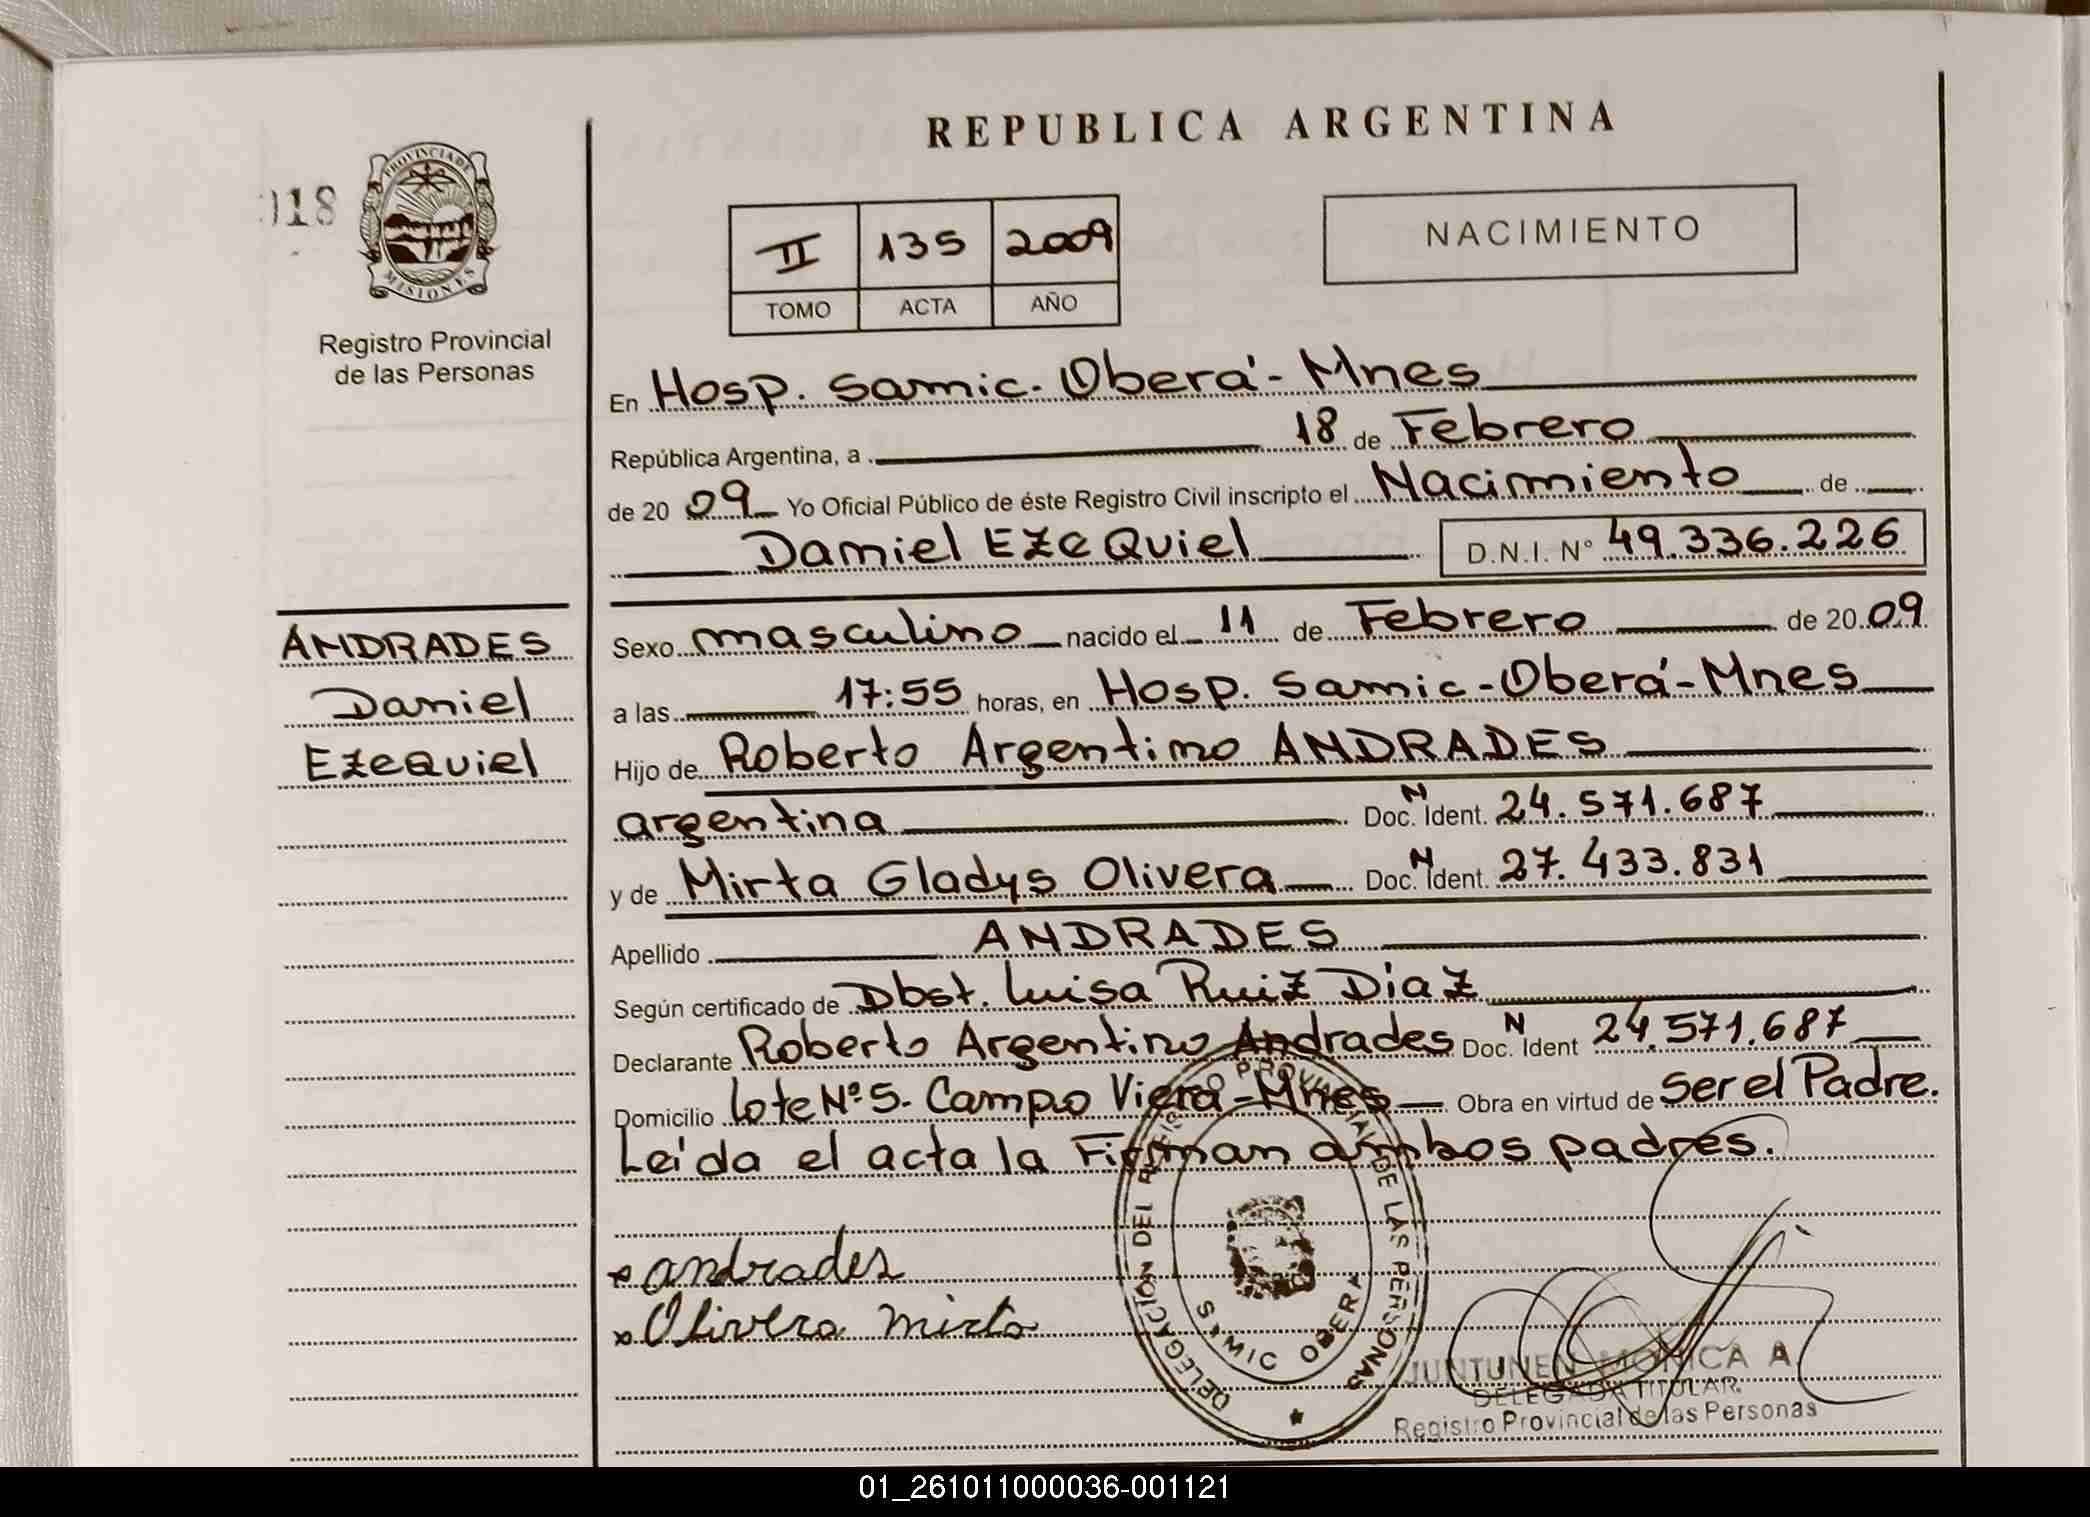 REPUBLICA ARGENTINA
018
PROVINCIA DE
MISIONES
Registro Provincial
de las Personas
II 135 2009
TOMO ACTA AÑO
NACIMIENTO
En Hosp. Samic. Oberá - Mnes
República Argentina, a 18 de Febrero
de 2009 Yo Oficial Público de éste Registro Civil inscripto el Nacimiento de
Daniel Ezequiel D.N.I. N° 49.336.226
ANDRADES
Daniel
Ezequiel
Sexo masculino nacido el 11 de Febrero de 2009
a las 17:55 horas, en Hosp. Samic - Oberá - Mnes
Hijo de Roberto Argentino ANDRADES
argentina Doc. N Ident. 24.571.687
y de Mirta Gladys Olivera Doc. N Ident. 27.433.831
Apellido ANDRADES
Según certificado de Obst. Luisa Ruiz Diaz
Declarante Roberto Argentino Andrades Doc. N Ident 24.571.687
Domicilio Lote Nº 5. Campo Viera - Mnes Obra en virtud de Ser el Padre.
Leída el acta la Firman ambos padres.
x andrades
x Olivera Mirta
DELEGACIÓN DEL REGISTRO PROVINCIAL DE LAS PERSONAS
SAMIC OBERA
JUNTUNEN MONICA A
DELEGADA TITULAR
Registro Provincial de las Personas
01_261011000036-001121